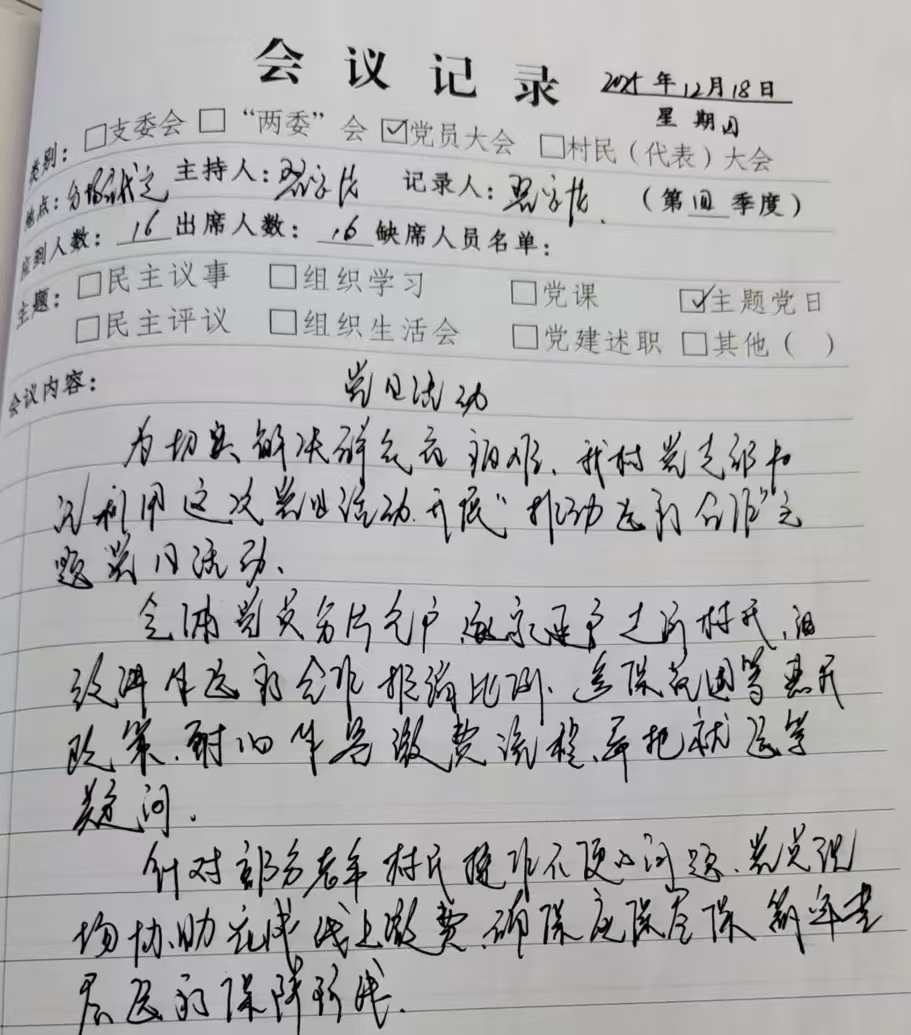 会议记录 2025年12月18日
星期四
类别：□支委会 □“两委”会 ☑党员大会 □村民（代表）大会
地点： 主持人： 记录人： （第四季度）
应到人数：16 出席人数：16 缺席人员名单：
主题：□民主议事 □组织学习 □党课 ☑主题党日
□民主评议 □组织生活会 □党建述职 □其他（ ）
会议内容： 党日活动
为切实解决群众急难，我村党支部
利用这次党日活动，开展“推动医疗合作”主
题党日活动。
全体党员分片包户，逐家逐户走访村民，细
致讲解医疗合作报销比例、医保范围等惠民
政策，耐心 缴费流程， 就医等
疑问。
针对部分老年村民操作不便的问题，党员现
场协助完成线上缴费，确保应保尽保，筑牢基
层医疗保障防线。